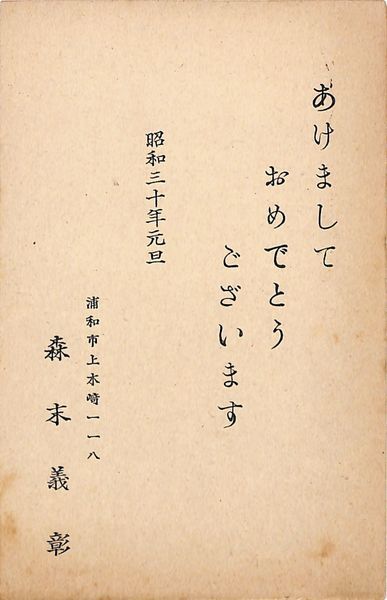 あけまして
おめでとう
ございます
昭和三十年元旦
浦和市上木崎一一八
森末義彰